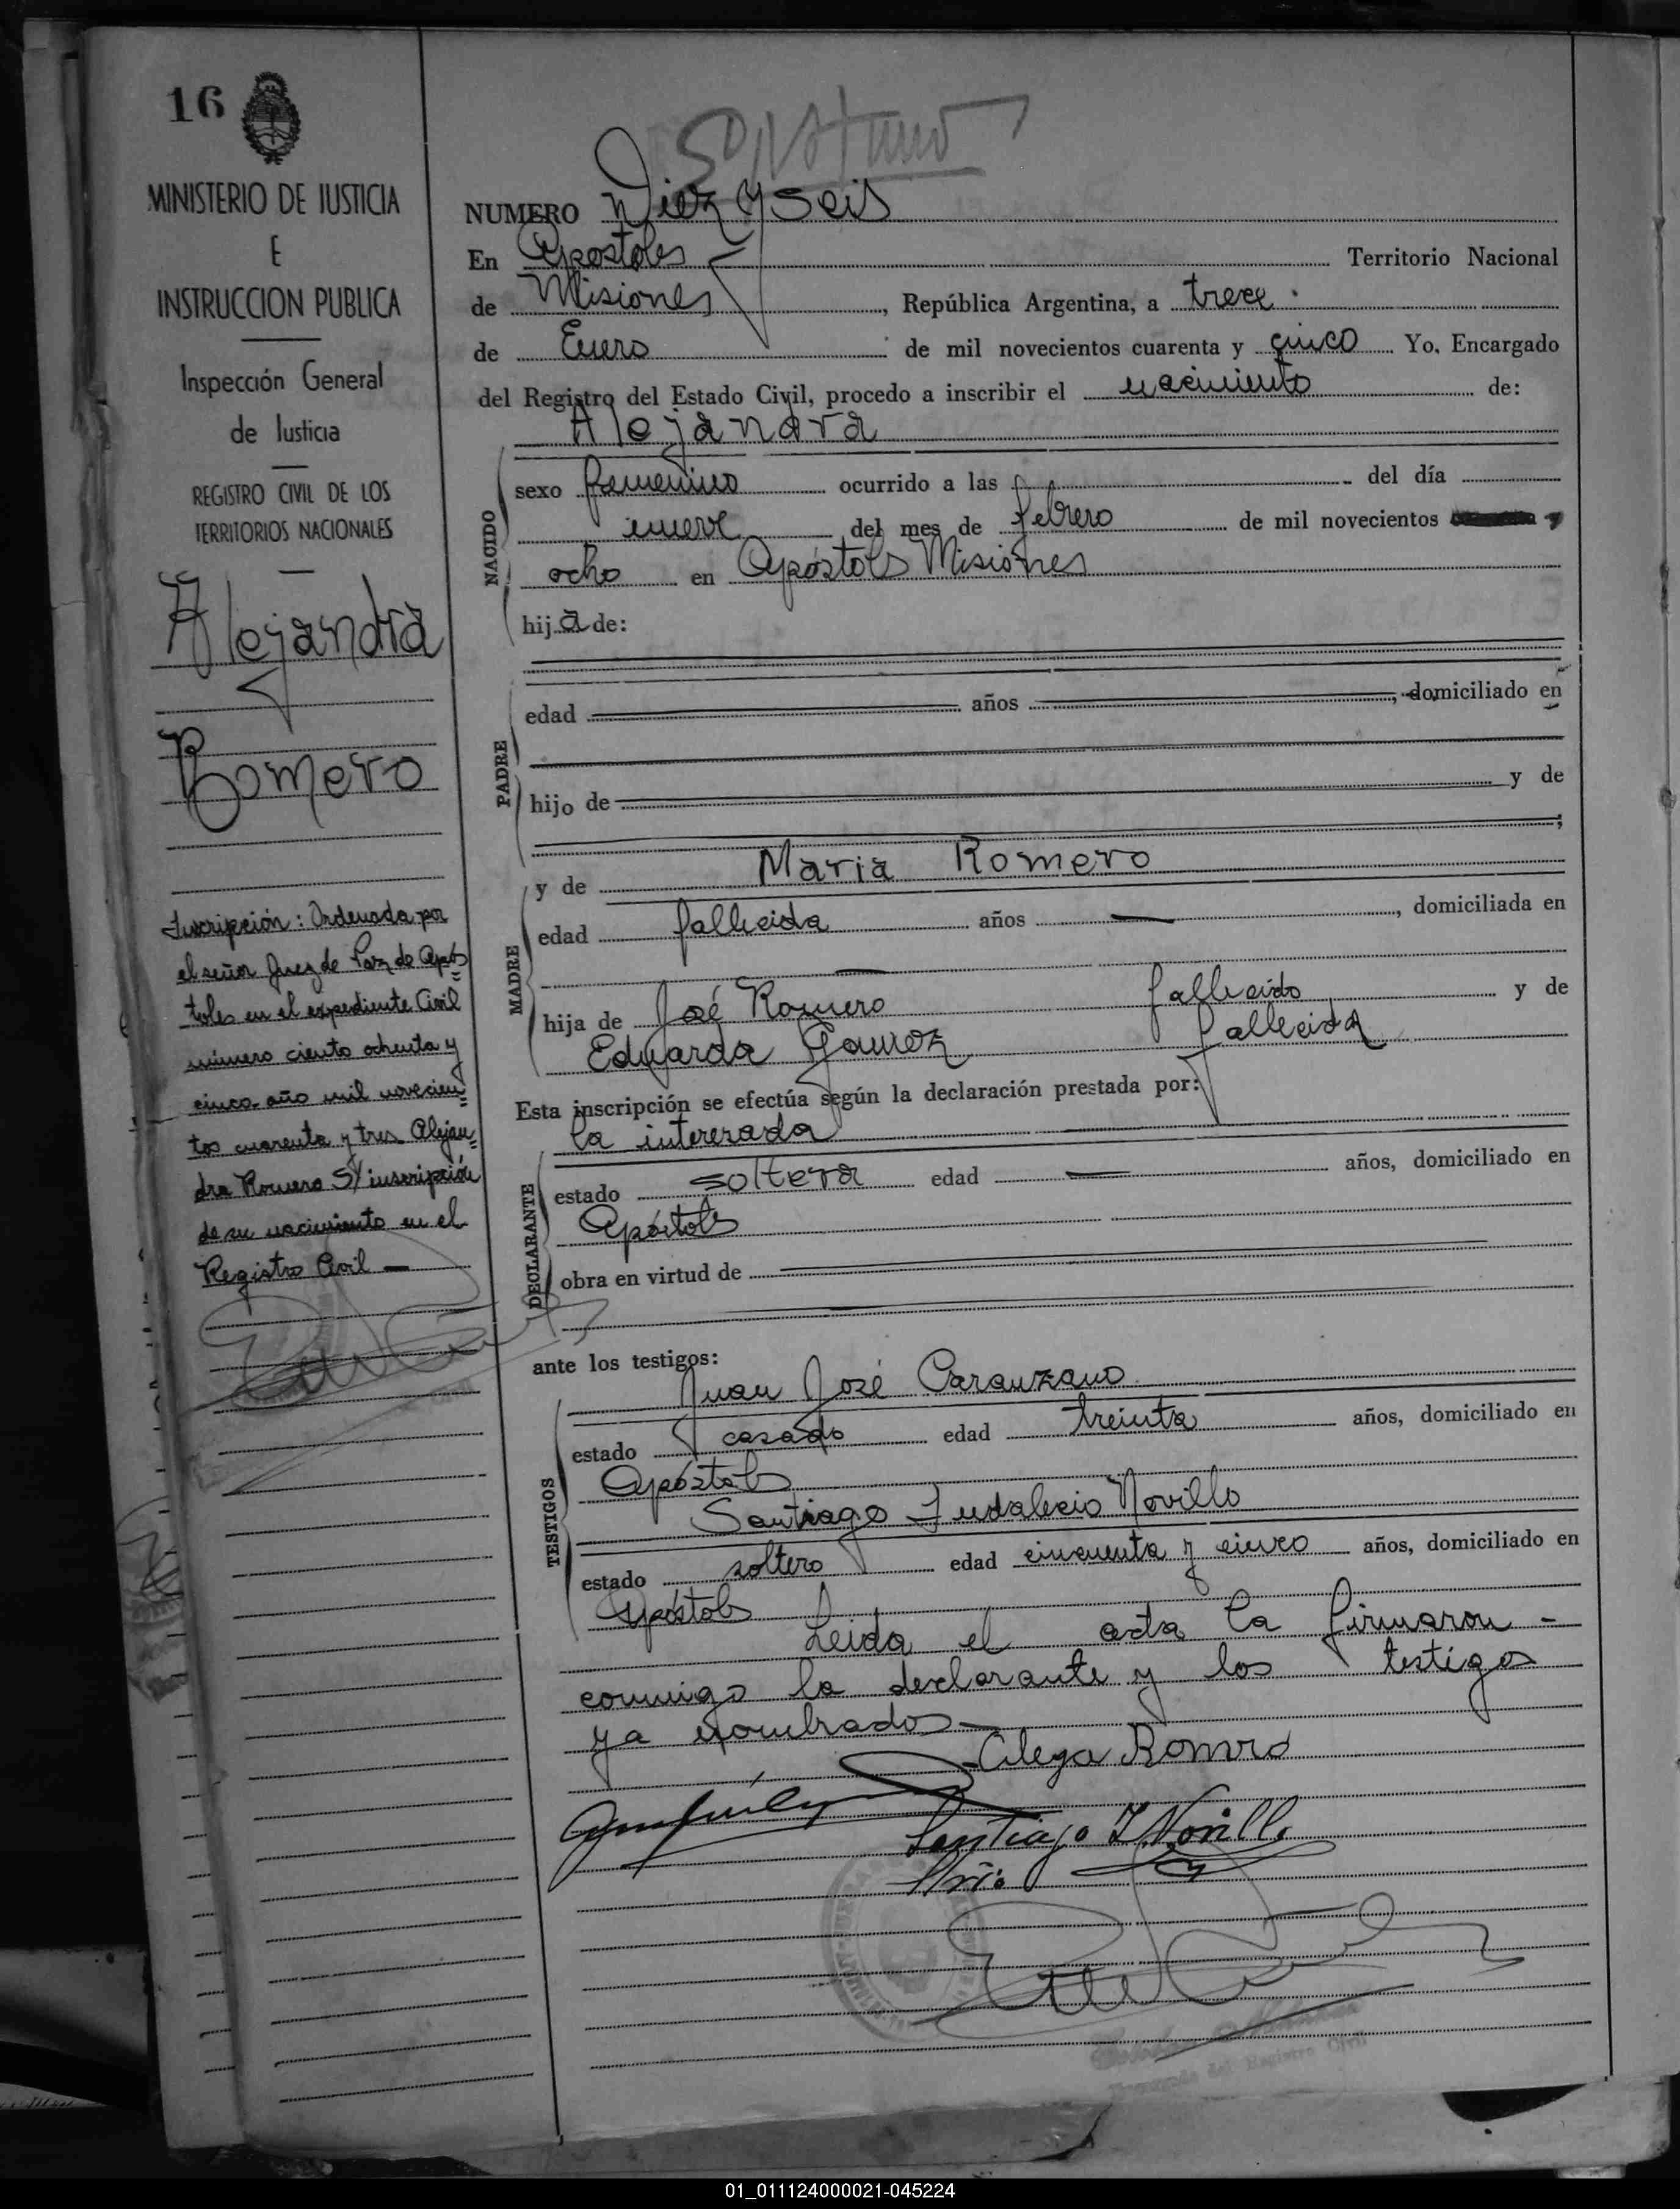 16
MINISTERIO DE JUSTICIA
E
INSTRUCCION PUBLICA
Inspección General
de Justicia
REGISTRO CIVIL DE LOS
TERRITORIOS NACIONALES
Alejandra
Romero
Inscripción: Ordenada por
el señor Juez de Paz de Após
toles en el expediente Civil
número ciento ochenta y
cinco año mil novecien
tos cuarenta y tres Alejan
dra Romero S/ inscripción
de su nacimiento en el
Registro Civil —
NUMERO Diez y seis
En Apostoles Territorio Nacional
de Misiones, República Argentina, a trece
de Enero de mil novecientos cuarenta y cinco Yo, Encargado
del Registro del Estado Civil, procedo a inscribir el nacimiento de:
Alejandra
NACIDO
sexo femenino ocurrido a las del día
nueve del mes de febrero de mil novecientos
ocho en Apóstoles Misiones
hija de:
PADRE
edad años , domiciliado en
hijo de y de
;
MADRE
y de Maria Romero
edad fallecida años — , domiciliada en
—
hija de José Romero fallecido y de
Eduarda Gamez fallecida
Esta inscripción se efectúa según la declaración prestada por:
la interezada
DECLARANTE
estado soltera edad — años, domiciliado en
Apóstoles
obra en virtud de
ante los testigos:
TESTIGOS
Juan José Caranzano
estado casado edad treinta años, domiciliado en
Apóstoles
Santiago Indalecio Novillo
estado soltero edad cincuenta y cinco años, domiciliado en
Apóstoles Leida el acta la firmaron -
conmigo la declarante y los testigos
ya nombrados —
Alega Romero
Santiago I. Novillo
Encargado del Registro Civil
01_011124000021-045224